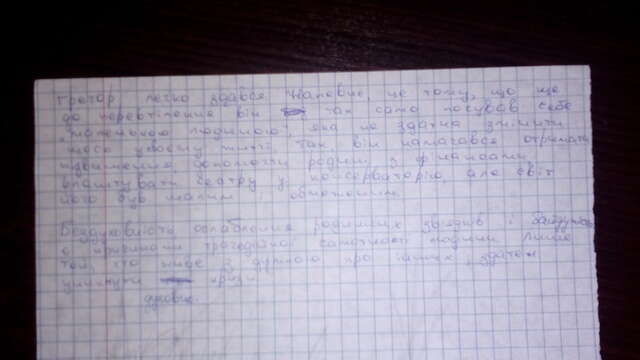 Грегор легко здався. Напевне, це тому, що ще
до перевтілення він так само почував себе
"маленькою людиною", яка не здатна змінити
щось у своєму житті. Так, він намагався отримати
підвищення, допомогти родині з фінансами,
влаштувати сестру у консерваторію, але світ
його був малим і обмеженим.
Бездуховність, ослаблення родинних зв'язків і байдужість
є причинами трагедійної самотності людини. Лише
той, хто живе з думкою про інших, здатен
уникнути кризи
духовне.